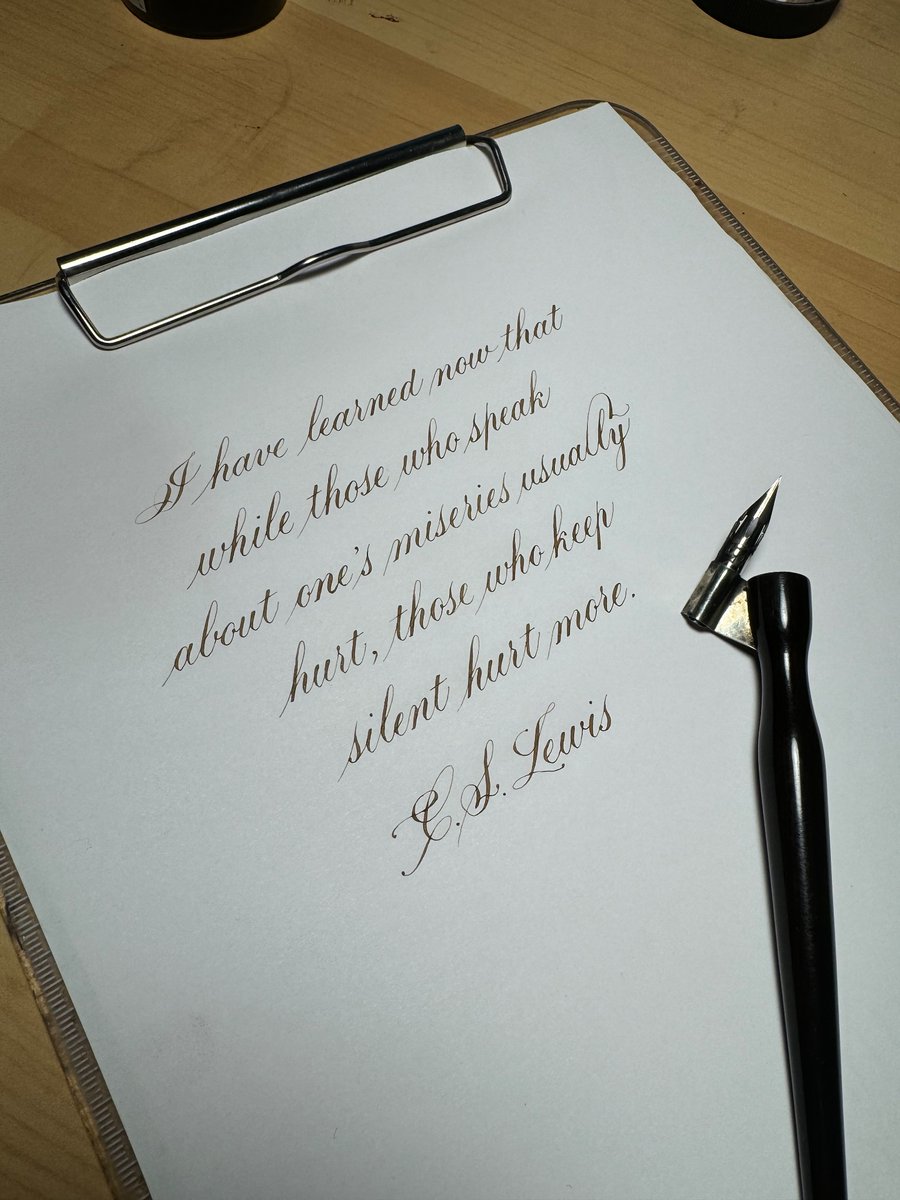 I have learned now that
while those who speak
about one's miseries usually
hurt, those who keep
silent hurt more.
C.S. Lewis